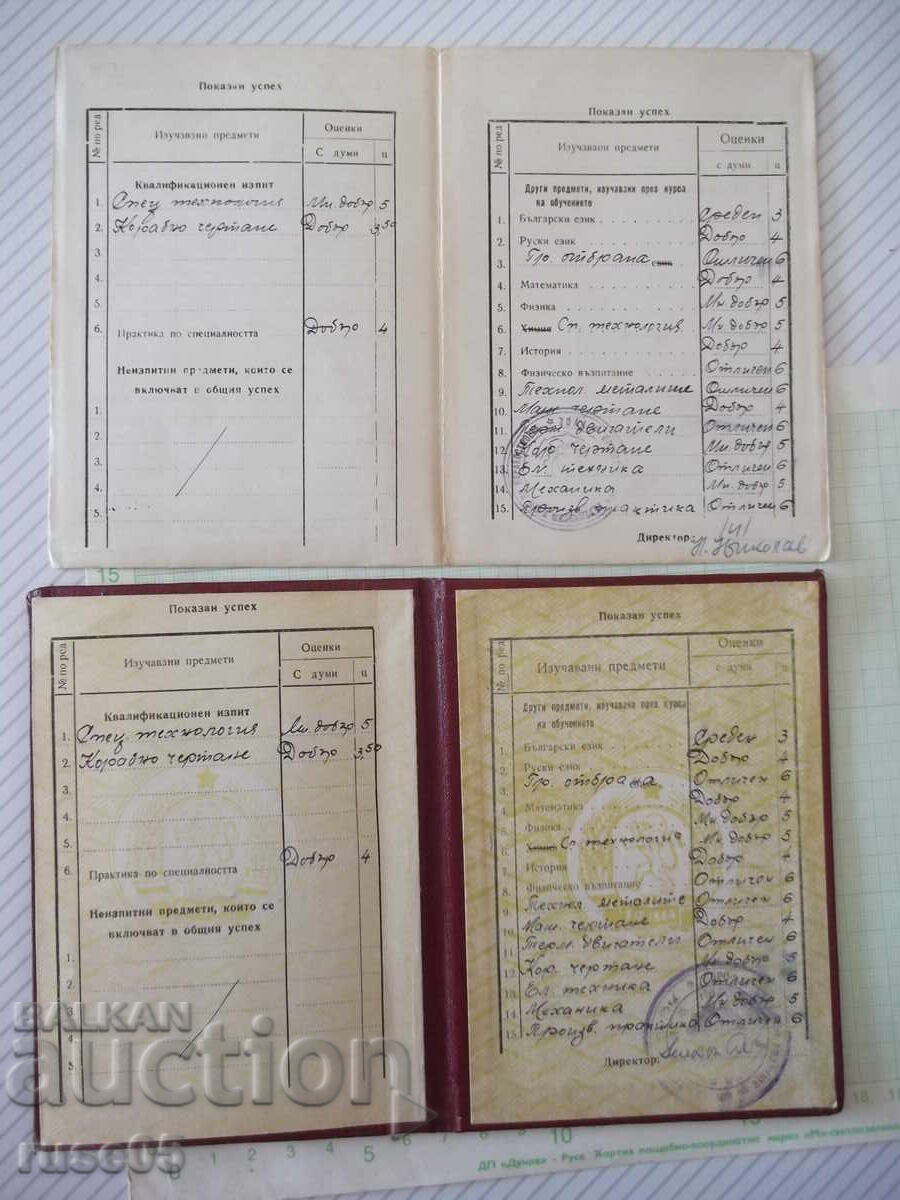 Показан успех
№ по ред
Изучавани предмети
Оценки
С думи
ц
Квалификационен изпит
1. Спец технология Мн. добър 5
2. Корабно чертане Добър 3,50
3.
4.
5.
6. Практика по специалността Добър 4
Неизпитни предмети, които се
включват в общия успех
1.
2.
3.
4.
5.
Показан успех
№ по ред
Изучавани предмети
Оценки
с думи
ц
Други предмети, изучавани през курса
на обучението
1. Български език Среден 3
2. Руски език Добър 4
3. Гр. отбрана език Отличен 6
4. Математика Добър 4
5. Физика Мн. добър 5
6. Химия Сп. технология Мн. добър 5
7. История Добър 4
8. Физическо възпитание Отличен 6
9. Технол. металите Отличен 6
10. Маш. чертане Добър 4
11. двигатели Отличен 6
12. Кор. чертане Мн. добър 5
13. Ел. техника Отличен 6
14. Механика Мн. добър 5
15. Произв. практика Отличен 6
Директор:
15
Показан успех
№ по ред
Изучавани предмети
Оценки
С думи
ц
Квалификационен изпит
1. Спец. технология Мн. добър 5
2. Корабно чертане Добър 3,50
3.
4.
5.
6. Практика по специалността Добър 4
Неизпитни предмети, които се
включват в общия успех
1.
2.
3.
4.
5.
Показан успех
№ по ред
Изучавани предмети
Оценки
с думи
ц
Други предмети, изучавана през курса
на обучението
1. Български език Среден 3
2. Руски език Добър 4
3. Гр. отбрана Отличен 6
4. Математика Добър 4
5. Физика Мн. добър 5
6. Химия Сп. технология Мн. добър 5
7. История Добър 4
8. Физическо възпитание Отличен 6
9. Технол. металите Отличен 6
10. Маш. чертане Добър 4
11. Терм. двигатели Отличен 6
12. Кор. чертане Мн. добър 5
13. Ел. техника Отличен 6
14. Механика Мн. добър 5
15. Произв. практика Отличен 6
Директор:
BALKAN
auction
ruse05
0 5 10 15 18
ДП «Дунав» - Русе